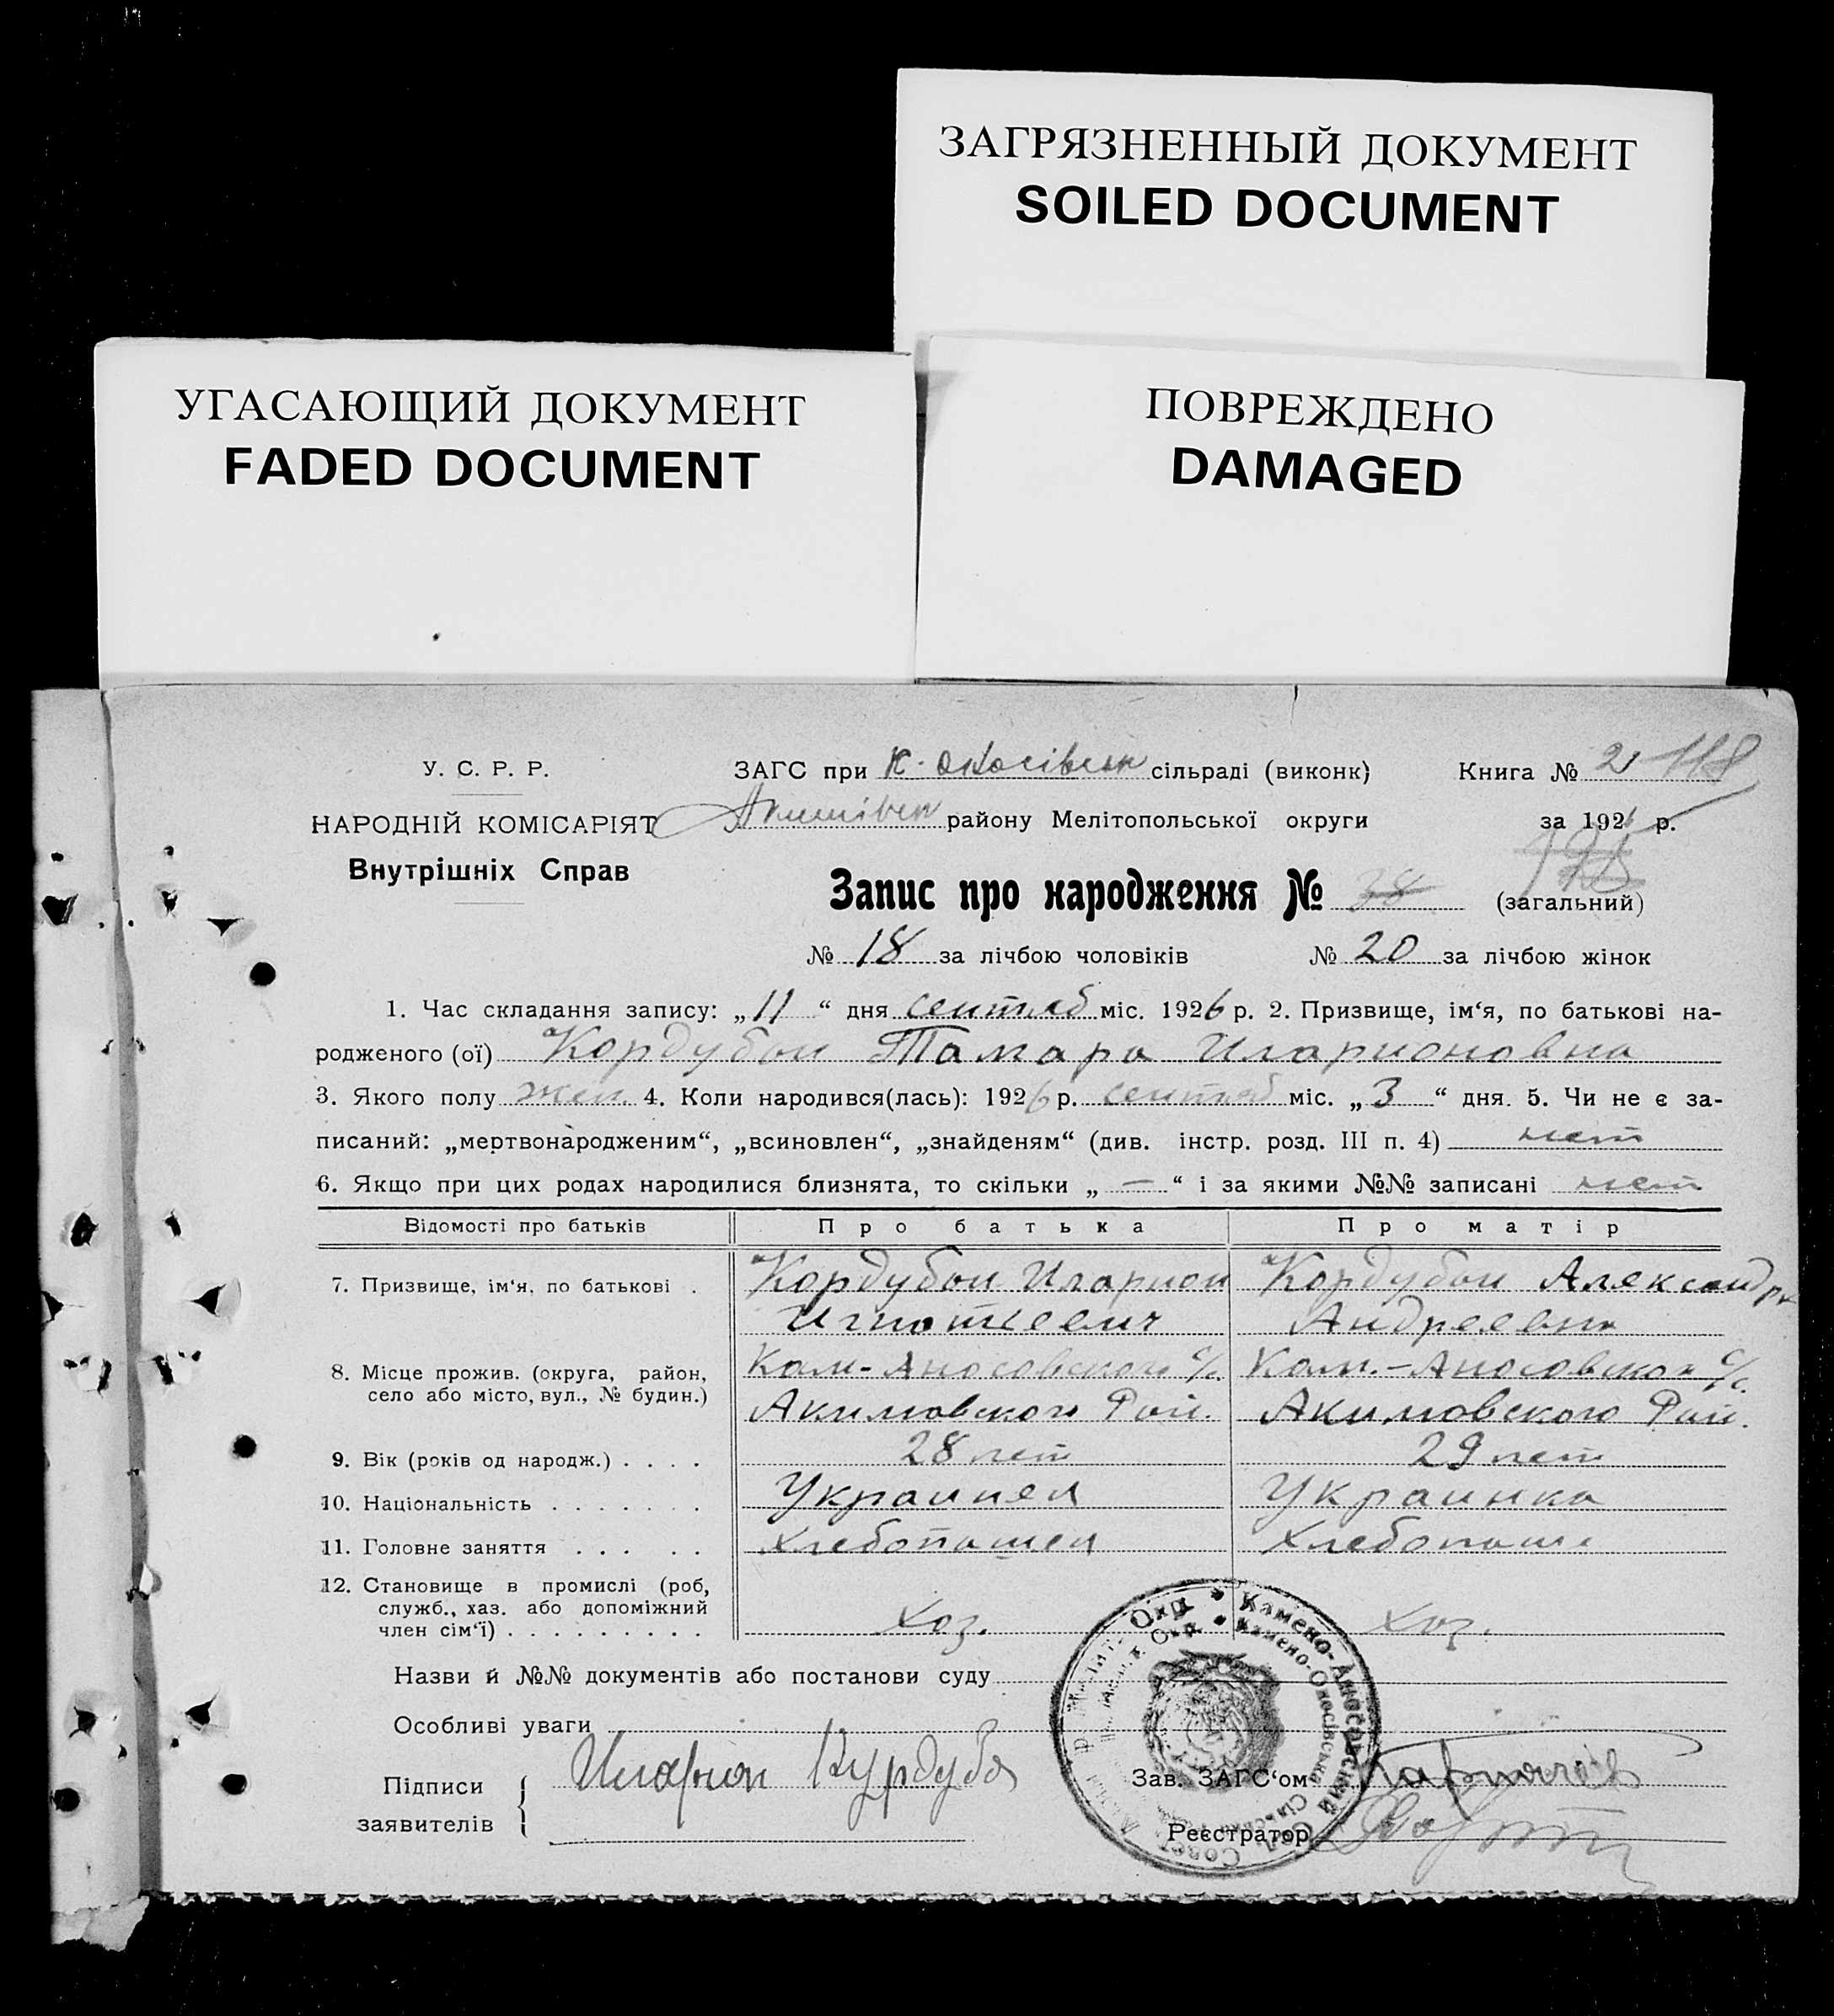 ЗАГРЯЗНЕННЫЙ ДОКУМЕНТ
SOILED DOCUMENT
УГАСАЮЩИЙ ДОКУМЕНТ
FADED DOCUMENT
ПОВРЕЖДЕНО
DAMAGED
У. С. Р. Р.
НАРОДНІЙ КОМІСАРІЯТ
Внутрішніх Справ
ЗАГС при К. Оносівськ сільраді (виконк) Книга № 2 118
Якимівськ району Мелітопольської округи за 1926 р.
Запис про народження № 38 (загальний)
№ 18 за лічбою чоловіків № 20 за лічбою жінок
1. Час складання запису: „11“ дня сентяб міс. 1926 р. 2. Призвище, ім‘я, по батькові на-
родженого (ої) Кордубан Тамара Иларионовна
3. Якого полу жен. 4. Коли народився(лась): 1926 р. сентяб міс. „3“ дня. 5. Чи не є за-
писаний: „мертвонародженим“, „всиновлен“, „знайденям“ (див. інстр. розд. III п. 4) нет
6. Якщо при цих родах народилися близнята, то скільки „—“ і за якими №№ записані нет
Відомості про батьків Про батька Про матір
7. Призвище, ім‘я, по батькові . Кордубан Иларион Кордубан Александра
Игнатьевич Андреевна
8. Місце прожив. (округа, район, село або місто, вул., № будин.) Кам-Аносовского с/с. Кам.-Аносовского с/с.
Акимовского Рай. Акимовского Рай.
9. Вік (років од народж.) . . . . 28 лет 29 лет
10. Національність . . . . . . . Украинец Украинка
11. Головне заняття . . . . . Хлебопашец Хлебопаше
12. Становище в промислі (роб, служб., хаз. або допоміжний член сім‘ї) . . . . . . . . . Хоз. Хоз.
Назви й №№ документів або постанови суду
Особливі уваги
Підписи заявителів Иларион Курдуба
Зав. ЗАГС‘ом
Реєстратор
Камено-Аносовский
Камено-Оносівська